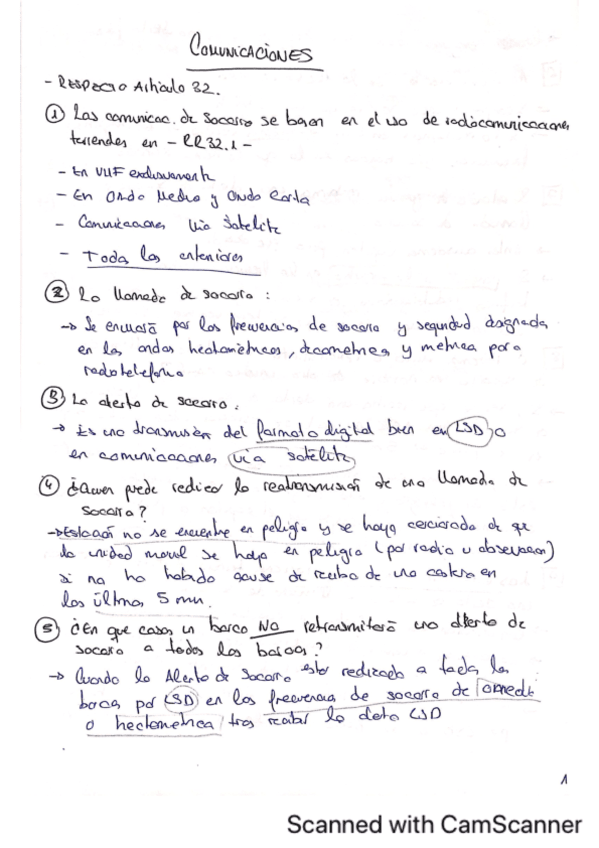 COMUNICACIONES
- RESPECTO Artículo 32.
① Las comunicac. de Socorro se basan en el uso de radiocomunicaciones
terrenales en - RR32.1 -
- En VHF exclusivamente
- En Onda Media y Onda Corta
- Comunicaciones Vía Satélite
- Todas las anteriores
② La llamada de socorro :
→ Se enviará por las frecuencias de socorro y seguridad asignadas
en las ondas hectométricas, decamétricas y métrica para
radiotelefonía
③ La alerta de socorro :
→ Es una transmisión del formato digital bien en LSD o
en comunicaciones vía satélite
④ ¿Quien puede realizar la retransmisión de una llamada de
socorro?
→ Estación no se encuentre en peligro y se haya cerciorado de que
la unidad movil se haya en peligro (por radio u observacion)
si no ha habido acuse de recibo de una costera en
los últimos 5 min.
⑤ ¿En que casos un barco NO retransmitirá una alerta de
socorro a todos los barcos?
→ Cuando la Alerta de Socorro este realizada a todos los
barcos por LSD en las frecuencias de socorro de
o hectometrica tras recibir la alerta LSD
1
Scanned with CamScanner